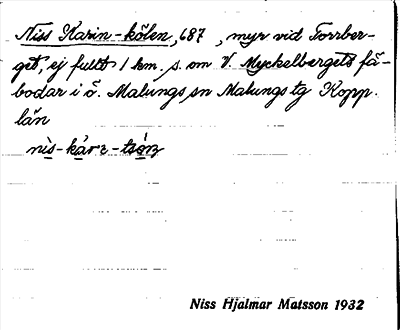 Niss Karin-kölen, 687, myr vid Torrber-
get, ej fullt 1 km. s. om V. Myckelbergets fä-
bodar i ö. Malungs sn Malungs tg Kopp.
län
Niss Hjalmar Matsson 1932